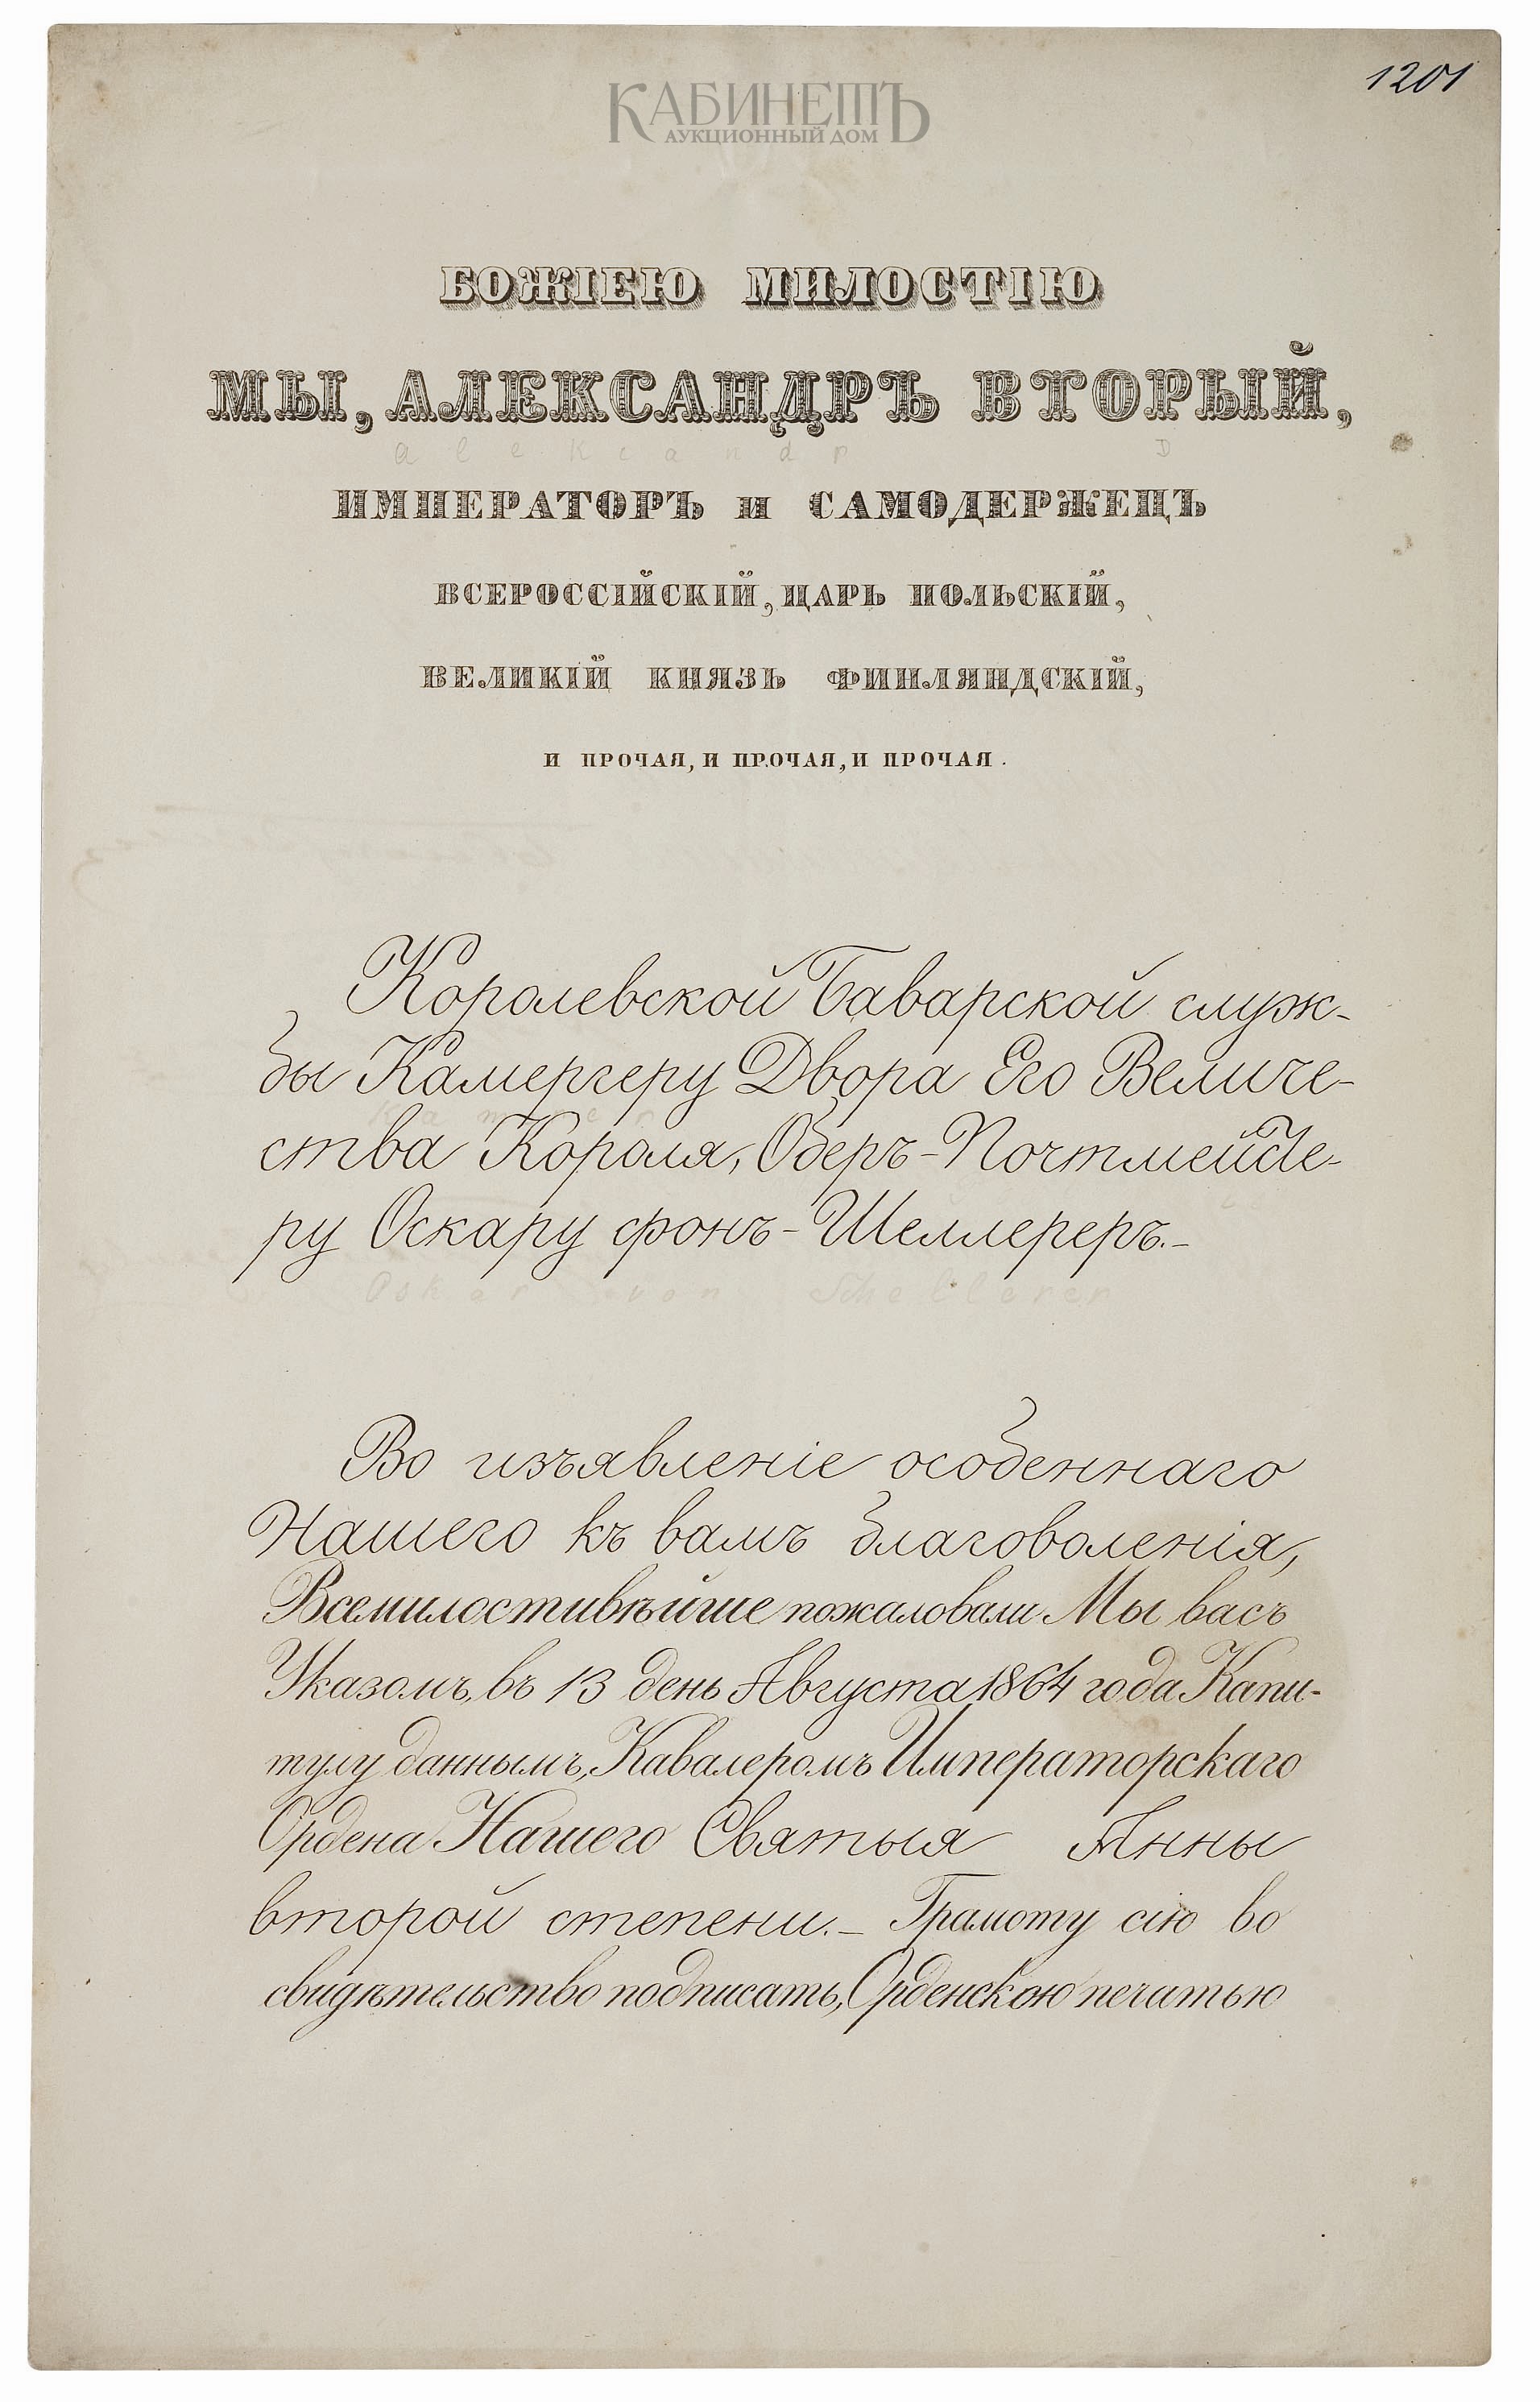 1201
КАБИНЕТЪ
АУКЦИОННЫЙ ДОМ
БОЖІЕЮ МИЛОСТІЮ
МЫ, АЛЕКСАНДРЪ ВТОРЫЙ,
a l e k c a n d p D
ИМПЕРАТОРЪ и САМОДЕРЖЕЦЪ
ВСЕРОССІЙСКІЙ, ЦАРЬ ПОЛЬСКІЙ,
ВЕЛИКІЙ КНЯЗЬ ФИНЛЯНДСКІЙ,
И ПРОЧАЯ, И ПРОЧАЯ, И ПРОЧАЯ.
Королевской Баварской служ-
бы Камергеру Двора Его Величе-
ства Короля, Оберъ-Почтмейсте-
ру Оскару фонъ-Шеллереръ.-
Oskar von Schellerer
Во изъявленіе особеннаго
Нашего къ вамъ благоволенія,
Всемилостивѣйше пожаловали Мы васъ
Указомъ, въ 13 день Августа 1864 года Капи-
тулу даннымъ, Кавалеромъ Императорскаго
Ордена Нашего Святыя Анны
второй степени.- Грамоту сію во
свидѣтельство подписать, Орденскою печатью